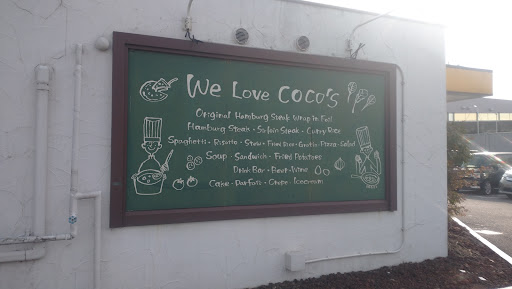 We Love COCO'S
Original Hamburg Steak Wrap in Foil
Hamburg Steak · Sirloin Steak · Curry Rice
Spaghetti · Risotto · Stew · Fried Rice · Gratin · Pizza · Salad
Soup · Sandwich · Fried Potatoes
Drink Bar · Beer · Wine
Cake · Parfait · Crepe · Icecream